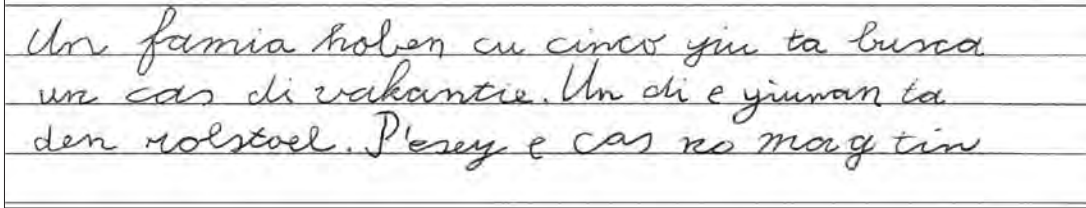 Un famia hoben cu cinco yiu ta busca
un cas di vakantie. Un di e yiunan ta
den rolstoel. P'esey e cas no mag tin